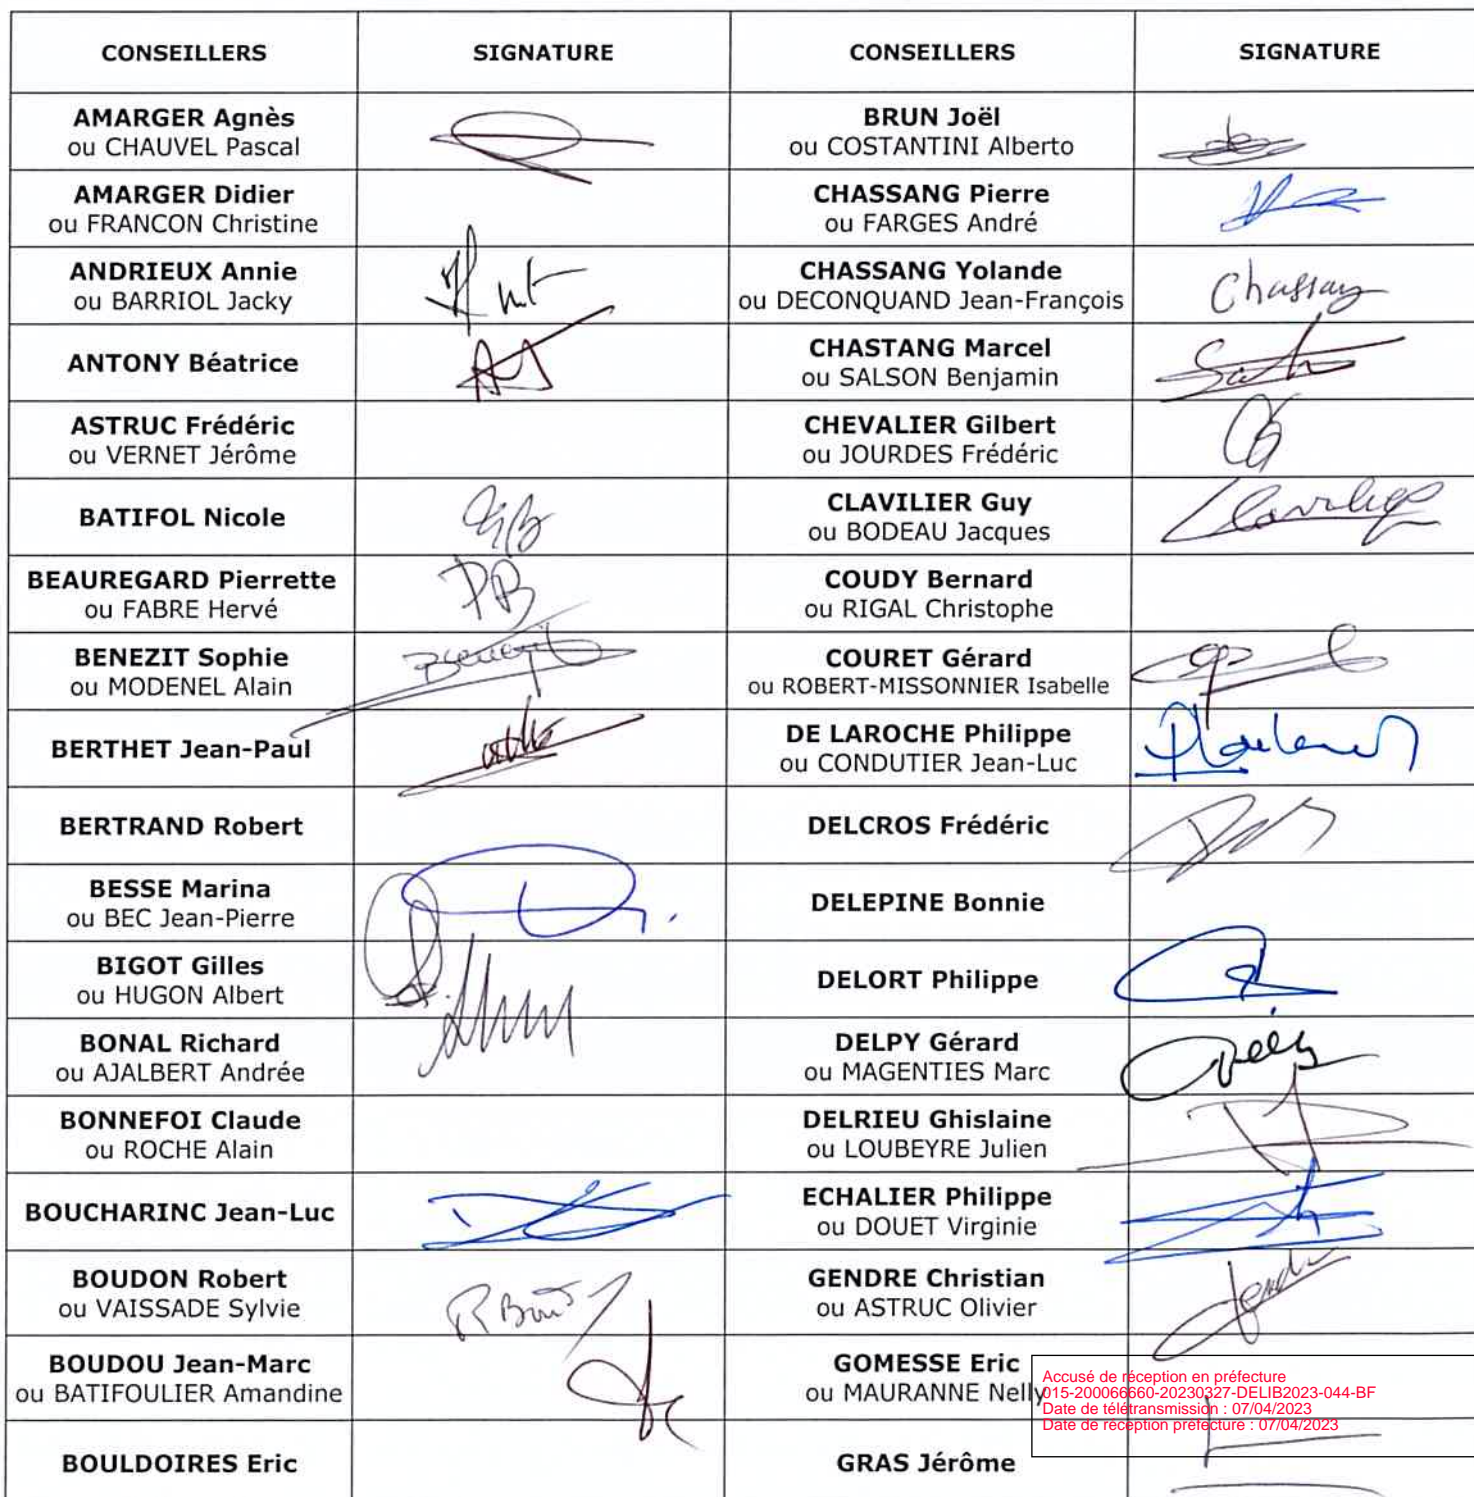 CONSEILLERS SIGNATURE CONSEILLERS SIGNATURE
AMARGER Agnès
ou CHAUVEL Pascal
BRUN Joël
ou COSTANTINI Alberto
AMARGER Didier
ou FRANCON Christine
CHASSANG Pierre
ou FARGES André
ANDRIEUX Annie
ou BARRIOL Jacky
CHASSANG Yolande
ou DECONQUAND Jean-François
Chassang
ANTONY Béatrice
CHASTANG Marcel
ou SALSON Benjamin
ASTRUC Frédéric
ou VERNET Jérôme
CHEVALIER Gilbert
ou JOURDES Frédéric
BATIFOL Nicole
CLAVILIER Guy
ou BODEAU Jacques
BEAUREGARD Pierrette
ou FABRE Hervé
PB
COUDY Bernard
ou RIGAL Christophe
BENEZIT Sophie
ou MODENEL Alain
Benezit
COURET Gérard
ou ROBERT-MISSONNIER Isabelle
BERTHET Jean-Paul
DE LAROCHE Philippe
ou CONDUTIER Jean-Luc
BERTRAND Robert
DELCROS Frédéric
BESSE Marina
ou BEC Jean-Pierre
DELEPINE Bonnie
BIGOT Gilles
ou HUGON Albert
DELORT Philippe
BONAL Richard
ou AJALBERT Andrée
DELPY Gérard
ou MAGENTIES Marc
BONNEFOI Claude
ou ROCHE Alain
DELRIEU Ghislaine
ou LOUBEYRE Julien
BOUCHARINC Jean-Luc
ECHALIER Philippe
ou DOUET Virginie
BOUDON Robert
ou VAISSADE Sylvie
GENDRE Christian
ou ASTRUC Olivier
BOUDOU Jean-Marc
ou BATIFOULIER Amandine
GOMESSE Eric
ou MAURANNE Nelly
Accusé de réception en préfecture
015-200066660-20230327-DELIB2023-044-BF
Date de télétransmission : 07/04/2023
Date de réception préfecture : 07/04/2023
BOULDOIRES Eric
GRAS Jérôme